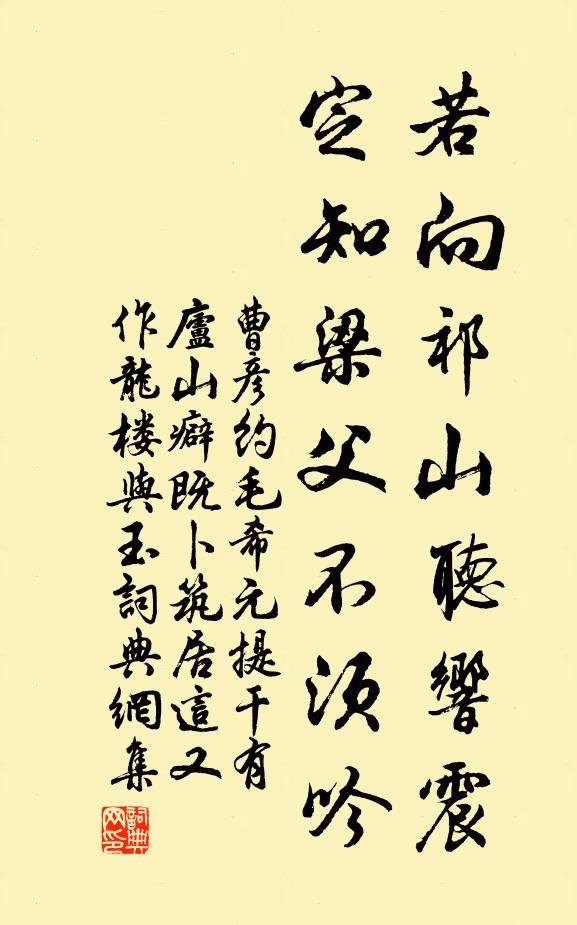 若向祁山聽響震
定知梁父不須吟
曹彦約毛希元提干有
廬山癖既卜筑居這又
作龍楼與玉詞典網集
詞典
网印